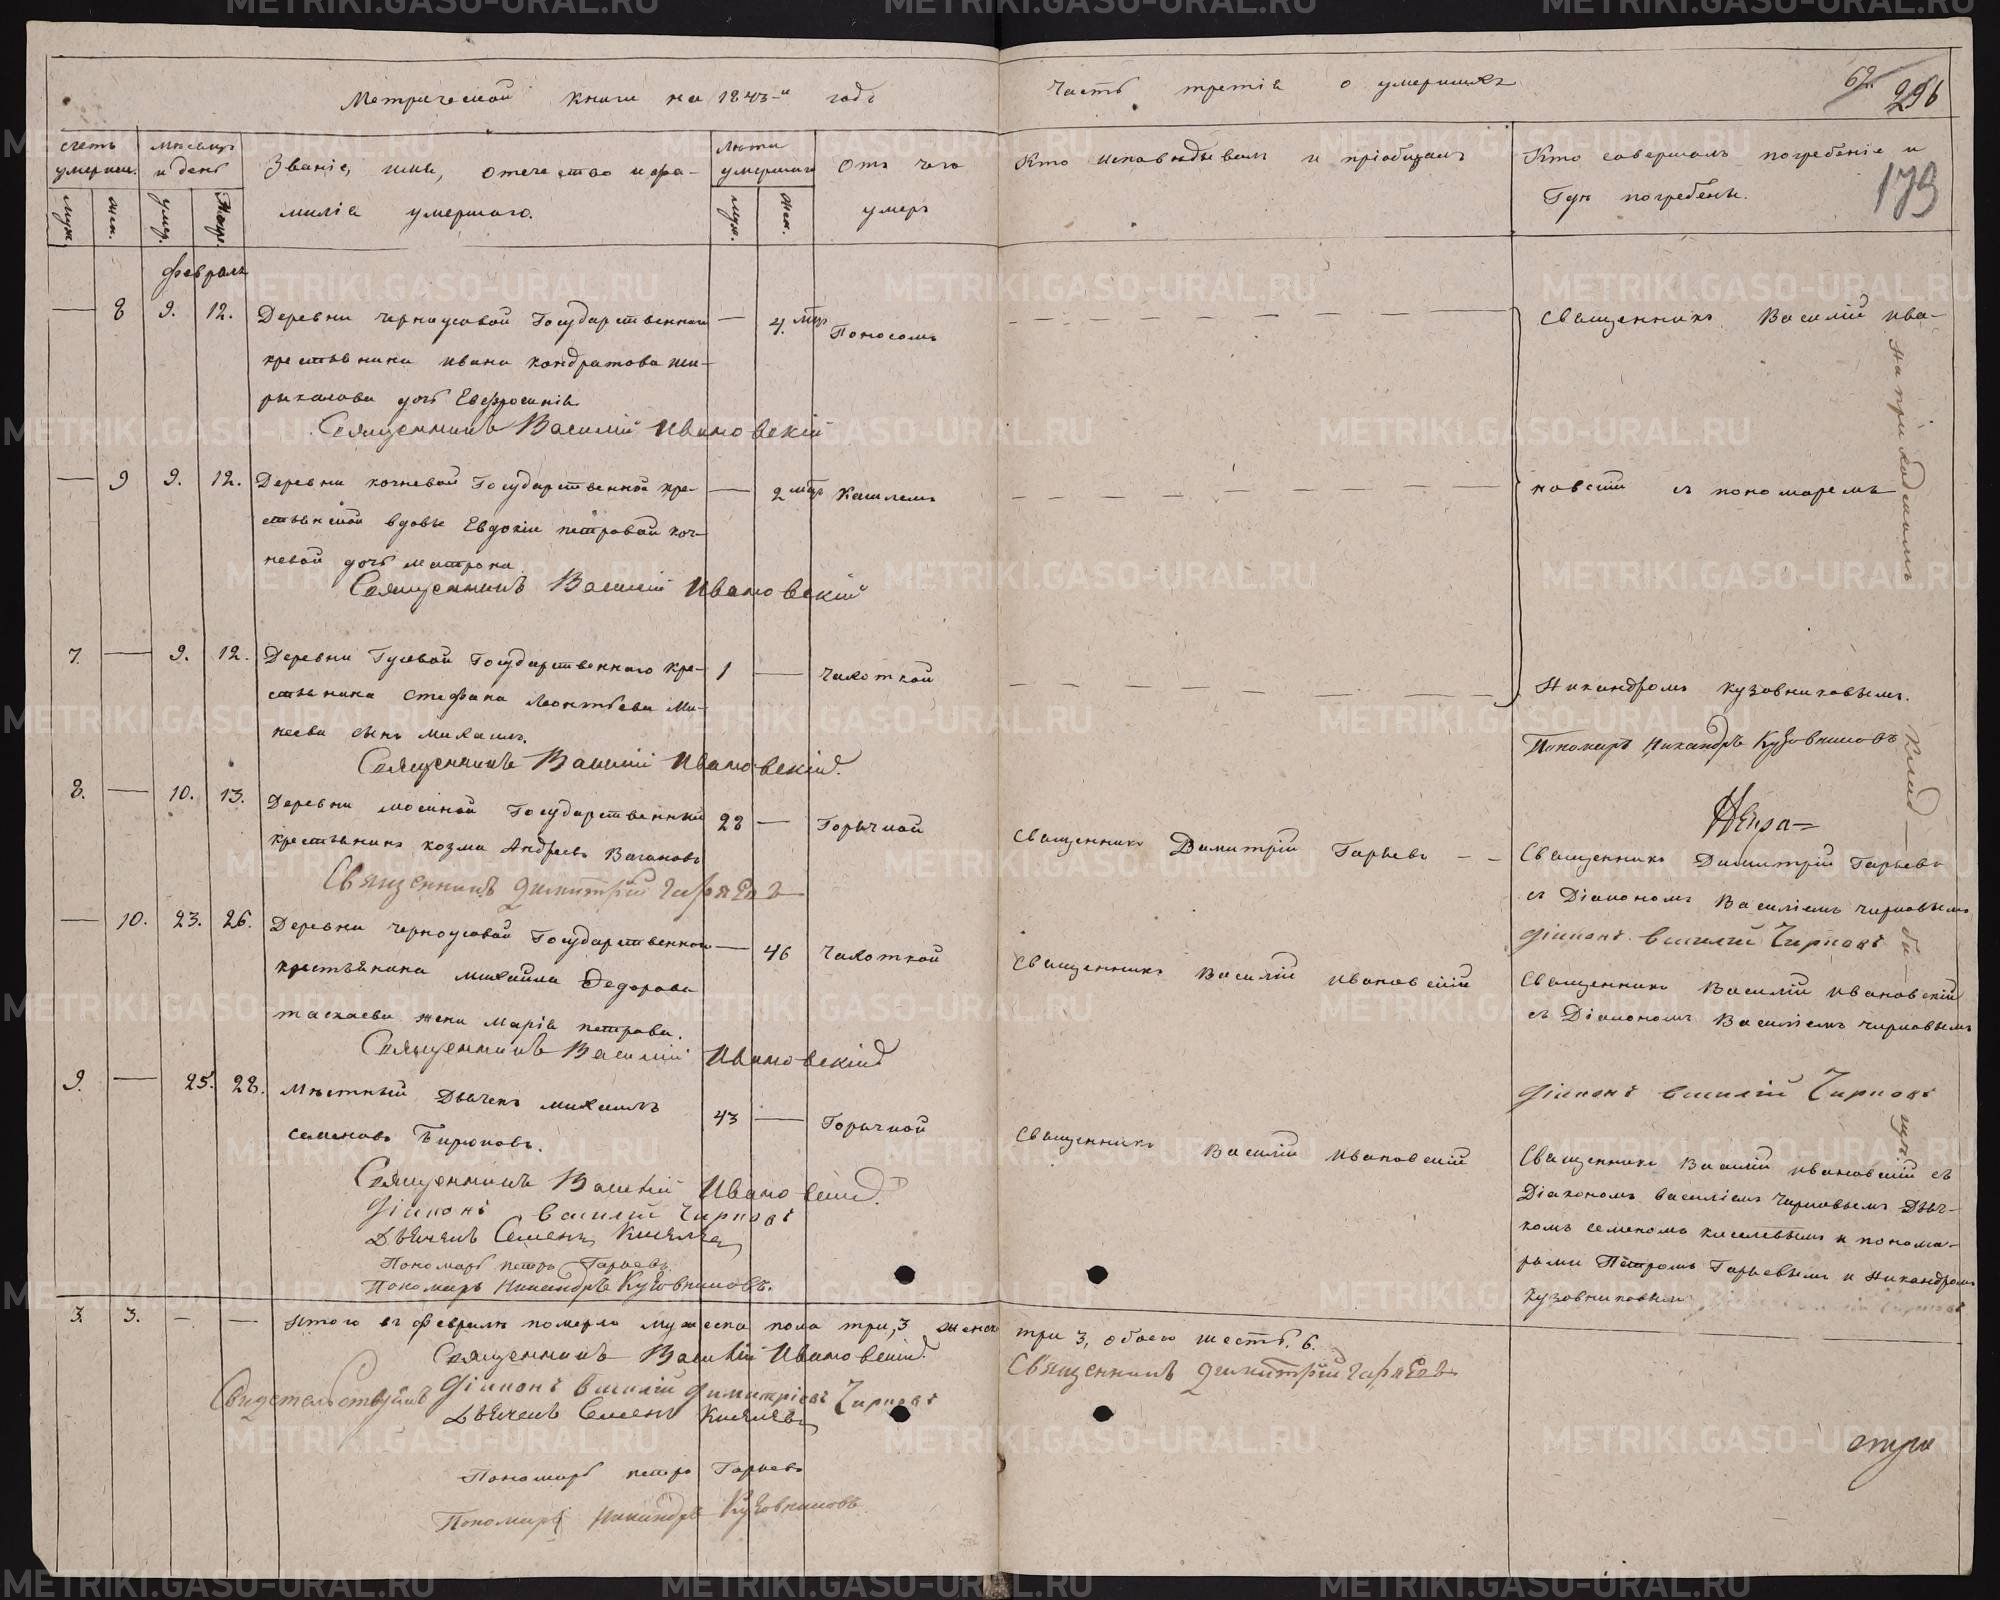 Метрической книги на 1843-й годъ
Часть третія о умершихъ
62.
296
173
Счетъ умерш.
Мѣсяцъ и день
Званіе, имя, отечество и фа-
милія умершаго.
Лѣта умершаго
Отъ чего
умеръ
Кто исповѣдывалъ и пріобщалъ
Кто совершалъ погребеніе и
Гдѣ погребены.
муж.
жен.
умер.
погр.
муж.
жен.
Февраль
— 8 9. 12. Деревни Черноусовой Государственнаго — 4. мѣц Поносомъ
крестьянина Ивана Кондратова Ши-
рыкалова дочь Евфросинія
Священникъ Василій Ивановскій
Священникъ Василій Ива-
— 9 9. 12. Деревни Кочневой Государственной кре- — 2 мѣц Кашлемъ
стьянской вдовы Евдокіи Петровой Коч-
невой дочь Матрона
Священникъ Василій Ивановскій
новскій съ пономаремъ
7. — 9. 12. Деревни Гусевой Государственнаго кре- 1 — Чахоткой
стьянина Стефана Леонтьева Ми-
неева сынъ Михаилъ.
Священникъ Василій Ивановскій.
Никандромъ Кузовниковымъ.
Пономарь Никандръ Кузовниковъ
на приходскомъ
клад
би
щѣ
8. — 10. 13. Деревни Мосиной Государственный 28 — Горячкой
крестьянинъ Козма Андреевъ Вагановъ
Священникъ Димитрій Гаряевъ
Священникъ Димитрій Гаряевъ
Священникъ Димитрій Гаряевъ
съ Діакономъ Василіемъ Чирковымъ
Діаконъ Василій Чирковъ
— 10. 23. 26. Деревни Черноусовой Государственнаго — 46 Чахоткой
крестьянина Михайла Федорова
Таскаева жена Марія Петрова.
Священникъ Василій Ивановскій
Священникъ Василій Ивановскій
Священникъ Василій Ивановскій
съ Діакономъ Василіемъ Чирковымъ
Діаконъ Василій Чирковъ
9. — 25. 28. Мѣстный Дьячекъ Михаилъ 43 — Горячкой
Семеновъ Бирюковъ.
Священникъ Василій Ивановскій.
Діаконъ Василій Чирковъ
Дьячекъ Семенъ Киселевъ
Пономарь Петръ Гаряевъ
Пономарь Никандръ Кузовниковъ.
Священникъ Василій Ивановскій
Священникъ Василій Ивановскій съ
Діакономъ Василіемъ Чирковымъ Дьяч-
комъ Семеномъ Киселевымъ и понома-
рями Петромъ Гаряевымъ и Никандромъ
Кузовниковымъ
3. 3. — — Итого въ Февралѣ померло мужеска пола три, 3 женск три 3, обоего шесть. 6.
Священникъ Василій Ивановскій.
Священникъ Димитрій Гаряевъ
Свидетельствуютъ Діаконъ Василій Димитріевъ Чирковъ
Дьячекъ Семенъ Киселевъ
Пономарь Петръ Гаряевъ
Пономарь Никандръ Кузовниковъ
METRIKI.GASO-URAL.RU